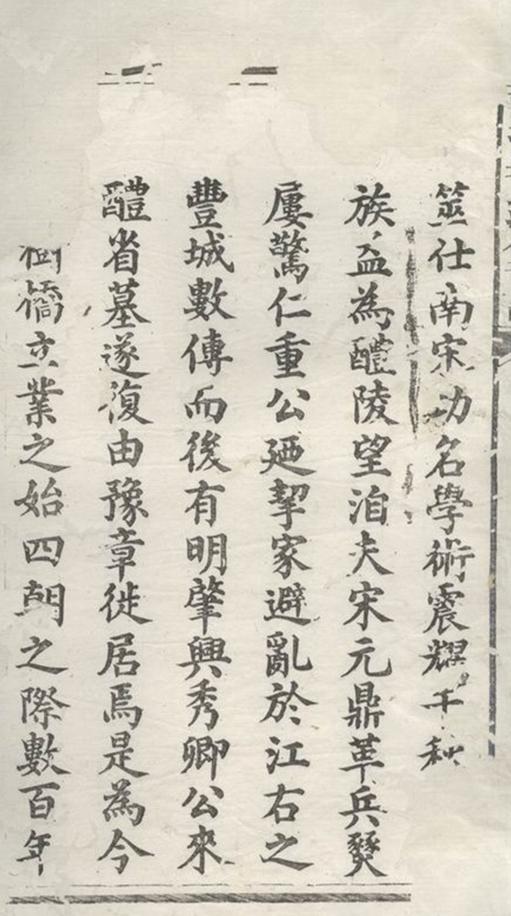 筮仕南宋功名學術震耀千秋
族益為醴陵望洎夫宋元鼎革兵燹
屢驚仁重公廼挈家避亂於江右之
豐城數傳而後有明肇興秀卿公來
醴省墓遂復由豫章徙居焉是為今
橋立業之始四朝之際數百年